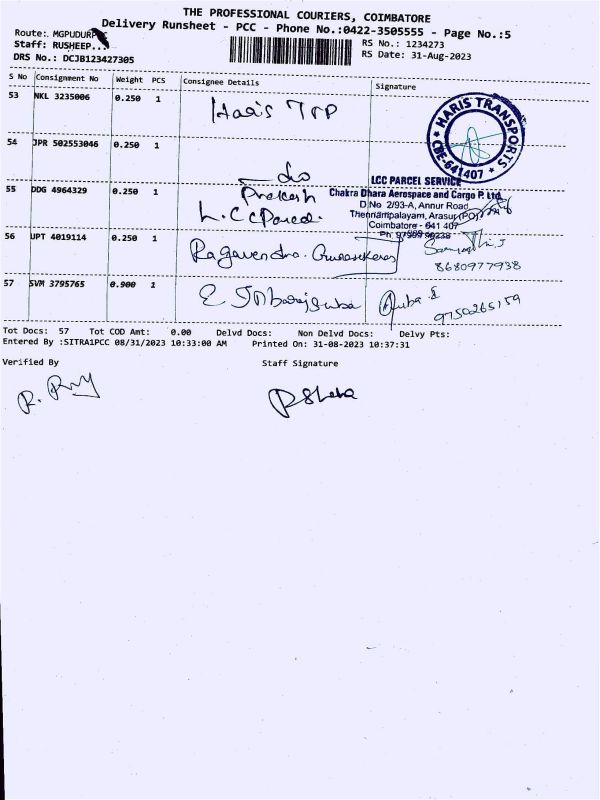 THE PROFESSIONAL COURIERS, COIMBATORE
Delivery Runsheet - PCC - Phone No.:0422-3505555 - Page No.:5
Route:. MGPUDUR
Staff: RUSHEEP...
DRS No.: DCJB123427305
RS No.: 1234273
RS Date: 31-Aug-2023
S No Consignment No Weight PCS Consignee Details Signature
53 NKL 3235006 0.250 1 Haris TrP
HARIS TRANSPORTS
CBE-641407
54 JPR 502553046 0.250 1
55 DDG 4964329 0.250 1 Prakash
L.C C Parcel.
LCC PARCEL SERVICE
Chakra Dhara Aerospace and Cargo P. Ltd.
D.No 2/93-A, Annur Road,
Thennampalayam, Arasur(PO),
Coimbatore - 641 407
56 UPT 4019114 0.250 1 Ragavendra.
8680977938
57 SVM 3795765 0.900 1
9750265159
Tot Docs: 57 Tot COD Amt: 0.00 Delvd Docs: Non Delvd Docs: Delvy Pts:
Entered By :SITRA1PCC 08/31/2023 10:33:00 AM Printed On: 31-08-2023 10:37:31
Verified By Staff Signature